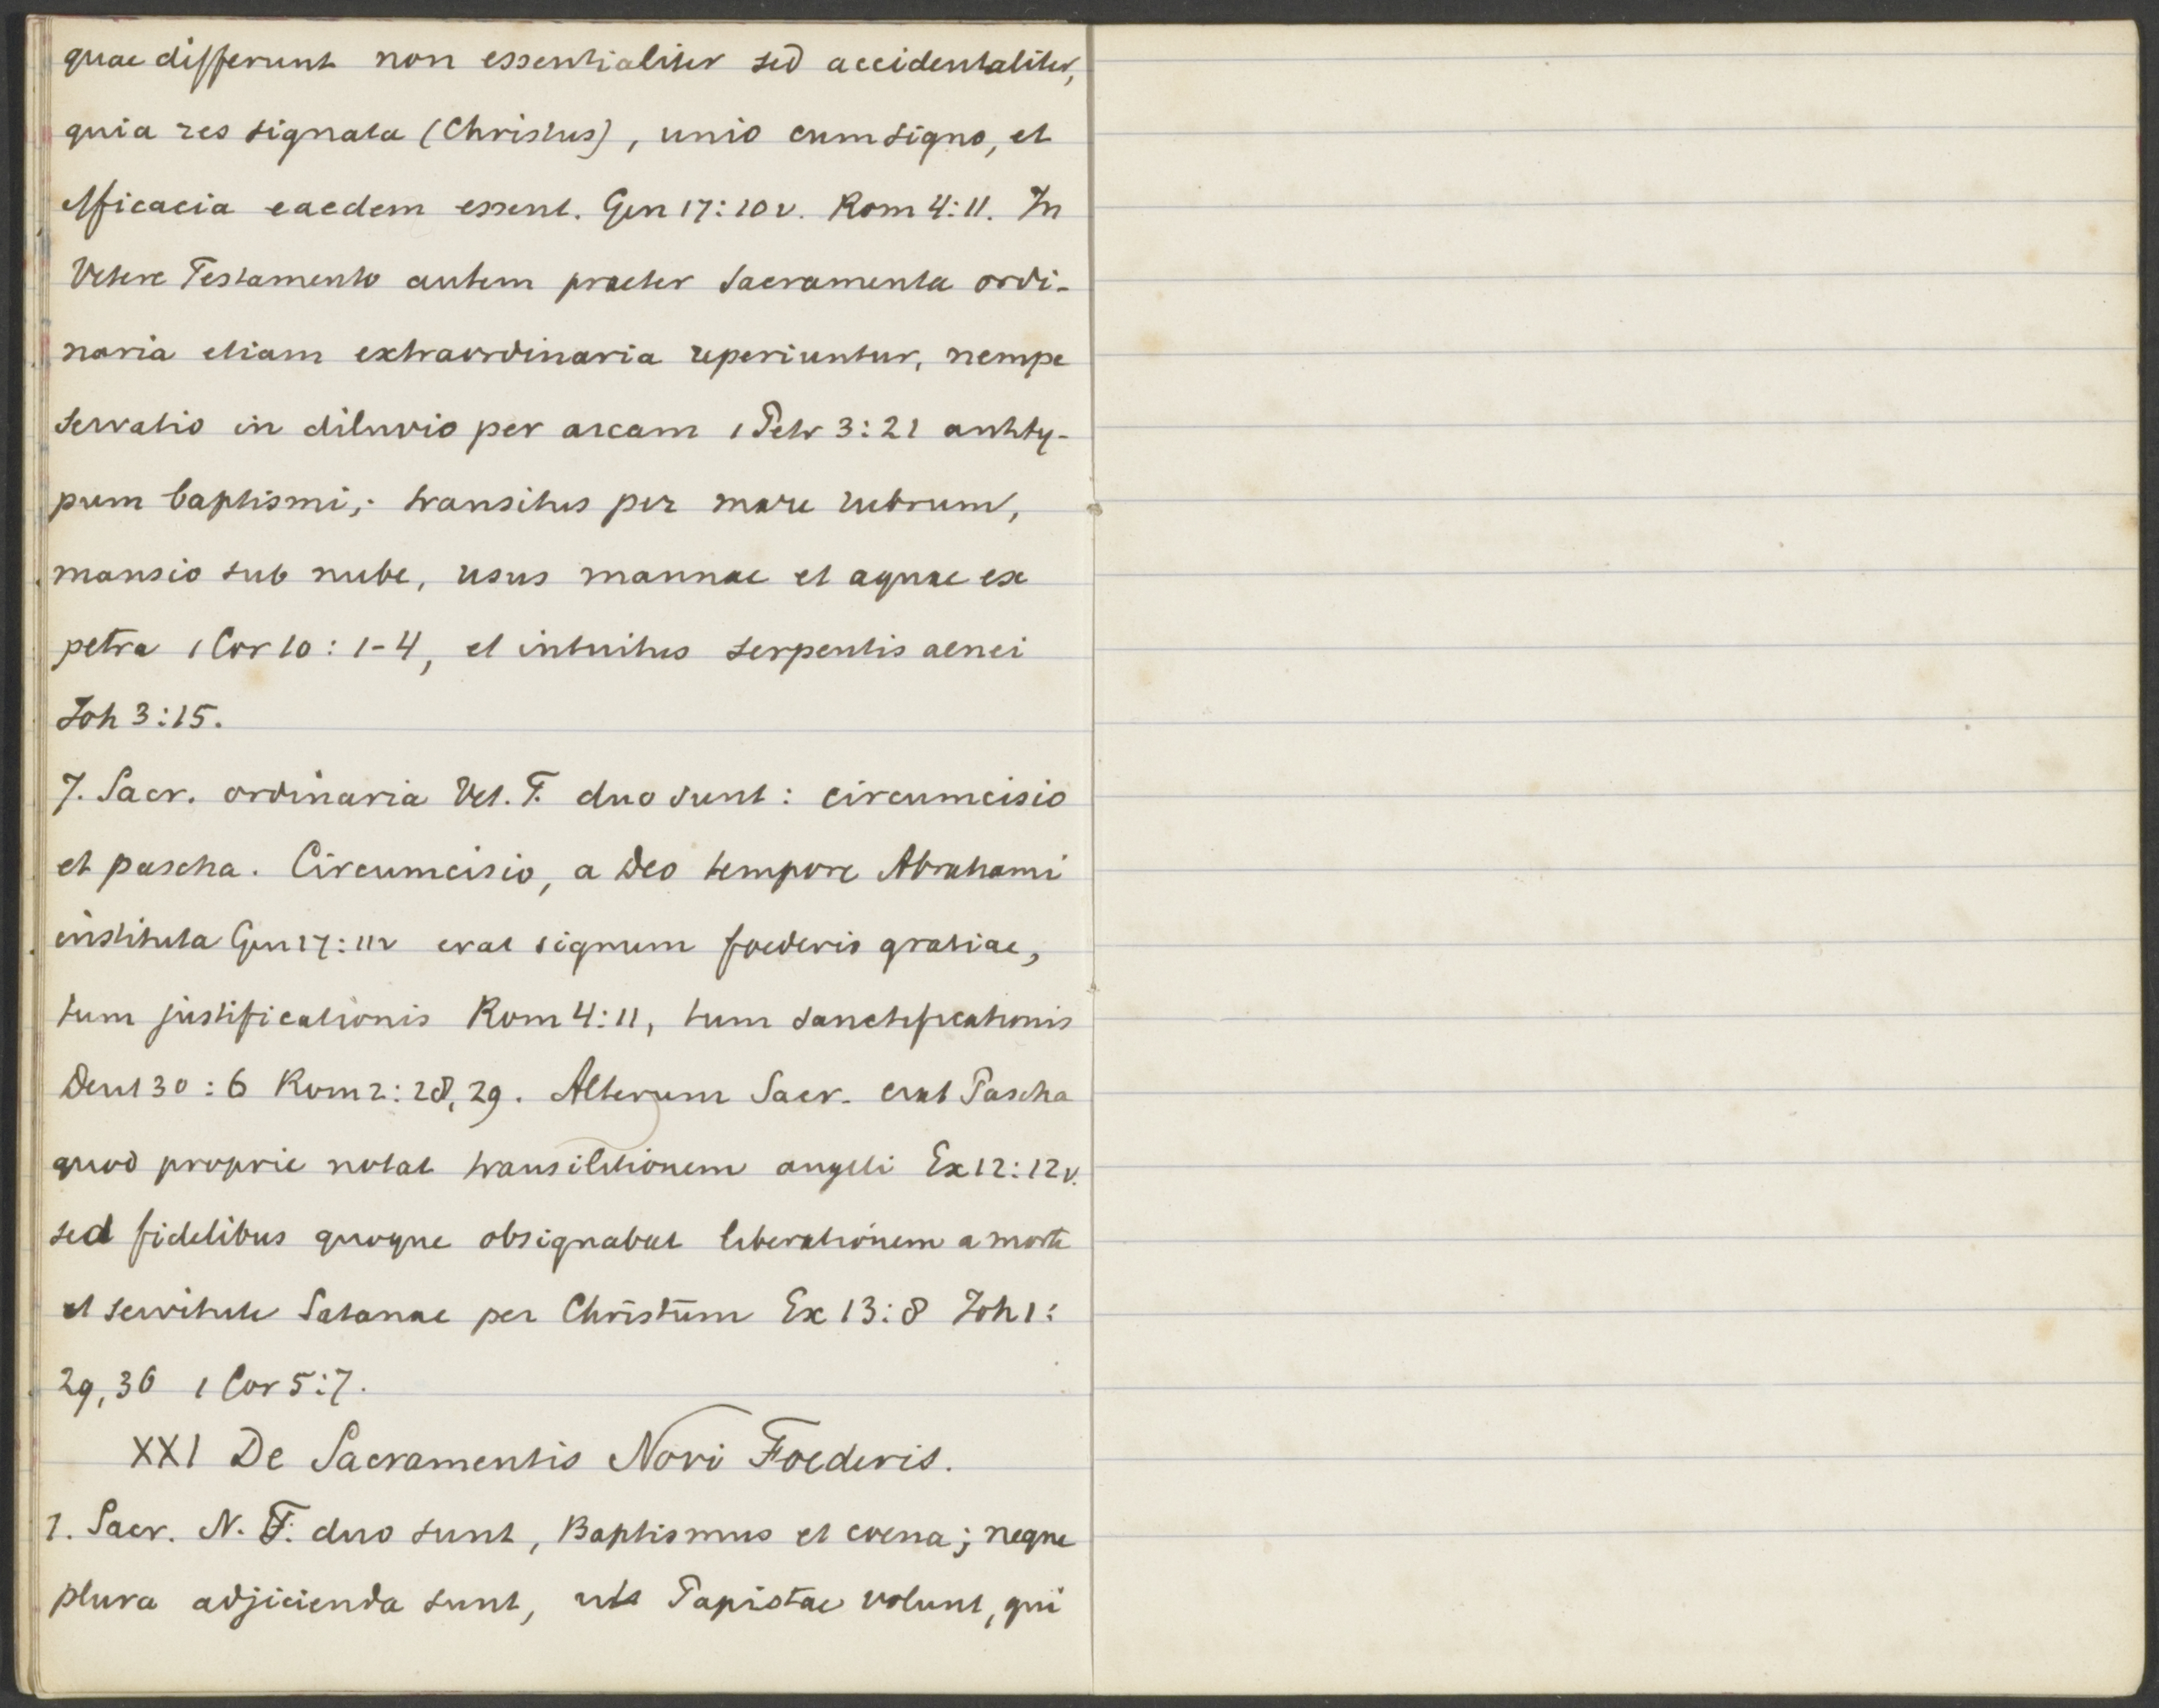 quae differunt non essentialiter sed accidentaliter,
quia res signata (Christus), unio cum signo, et
efficacia eaedem essent. Gen 17:10v. Rom 4:11. In
Vetere Testamento autem praeter sacramenta ordi-
naria etiam extraordinaria reperiuntur, nempe
servatio in diluvio per arcam 1 Petr 3:21 antity-
pum baptismi; transitus per mare rubrum,
mansio sub nube, usus mannae et aquae ex
petra 1 Cor 10:1-4, et intuitus serpentis aenei
Joh 3:15.
7. Sacr. ordinaria Vet. T. duo sunt: circumcisio
et pascha. Circumcisio, a Deo tempore Abrahami
instituta Gen 17:11v erat signum foederis gratiae,
tum justificationis Rom 4:11, tum sanctificationis
Deut 30:6 Rom 2:28,29. Alterum Sacr. erat Pascha
quod proprie notat transilitionem angeli Ex 12:12v.
sed fidelibus quoque obsignabat liberationem a morte
et servitute Satanae per Christum Ex 13:8 Joh 1:
29,36 1 Cor 5:7.
XXI De Sacramentis Novi Foederis.
1. Sacr. N. F. duo sunt, Baptismus et coena; neque
plura adjicienda sunt, uti Papistae volunt, qui